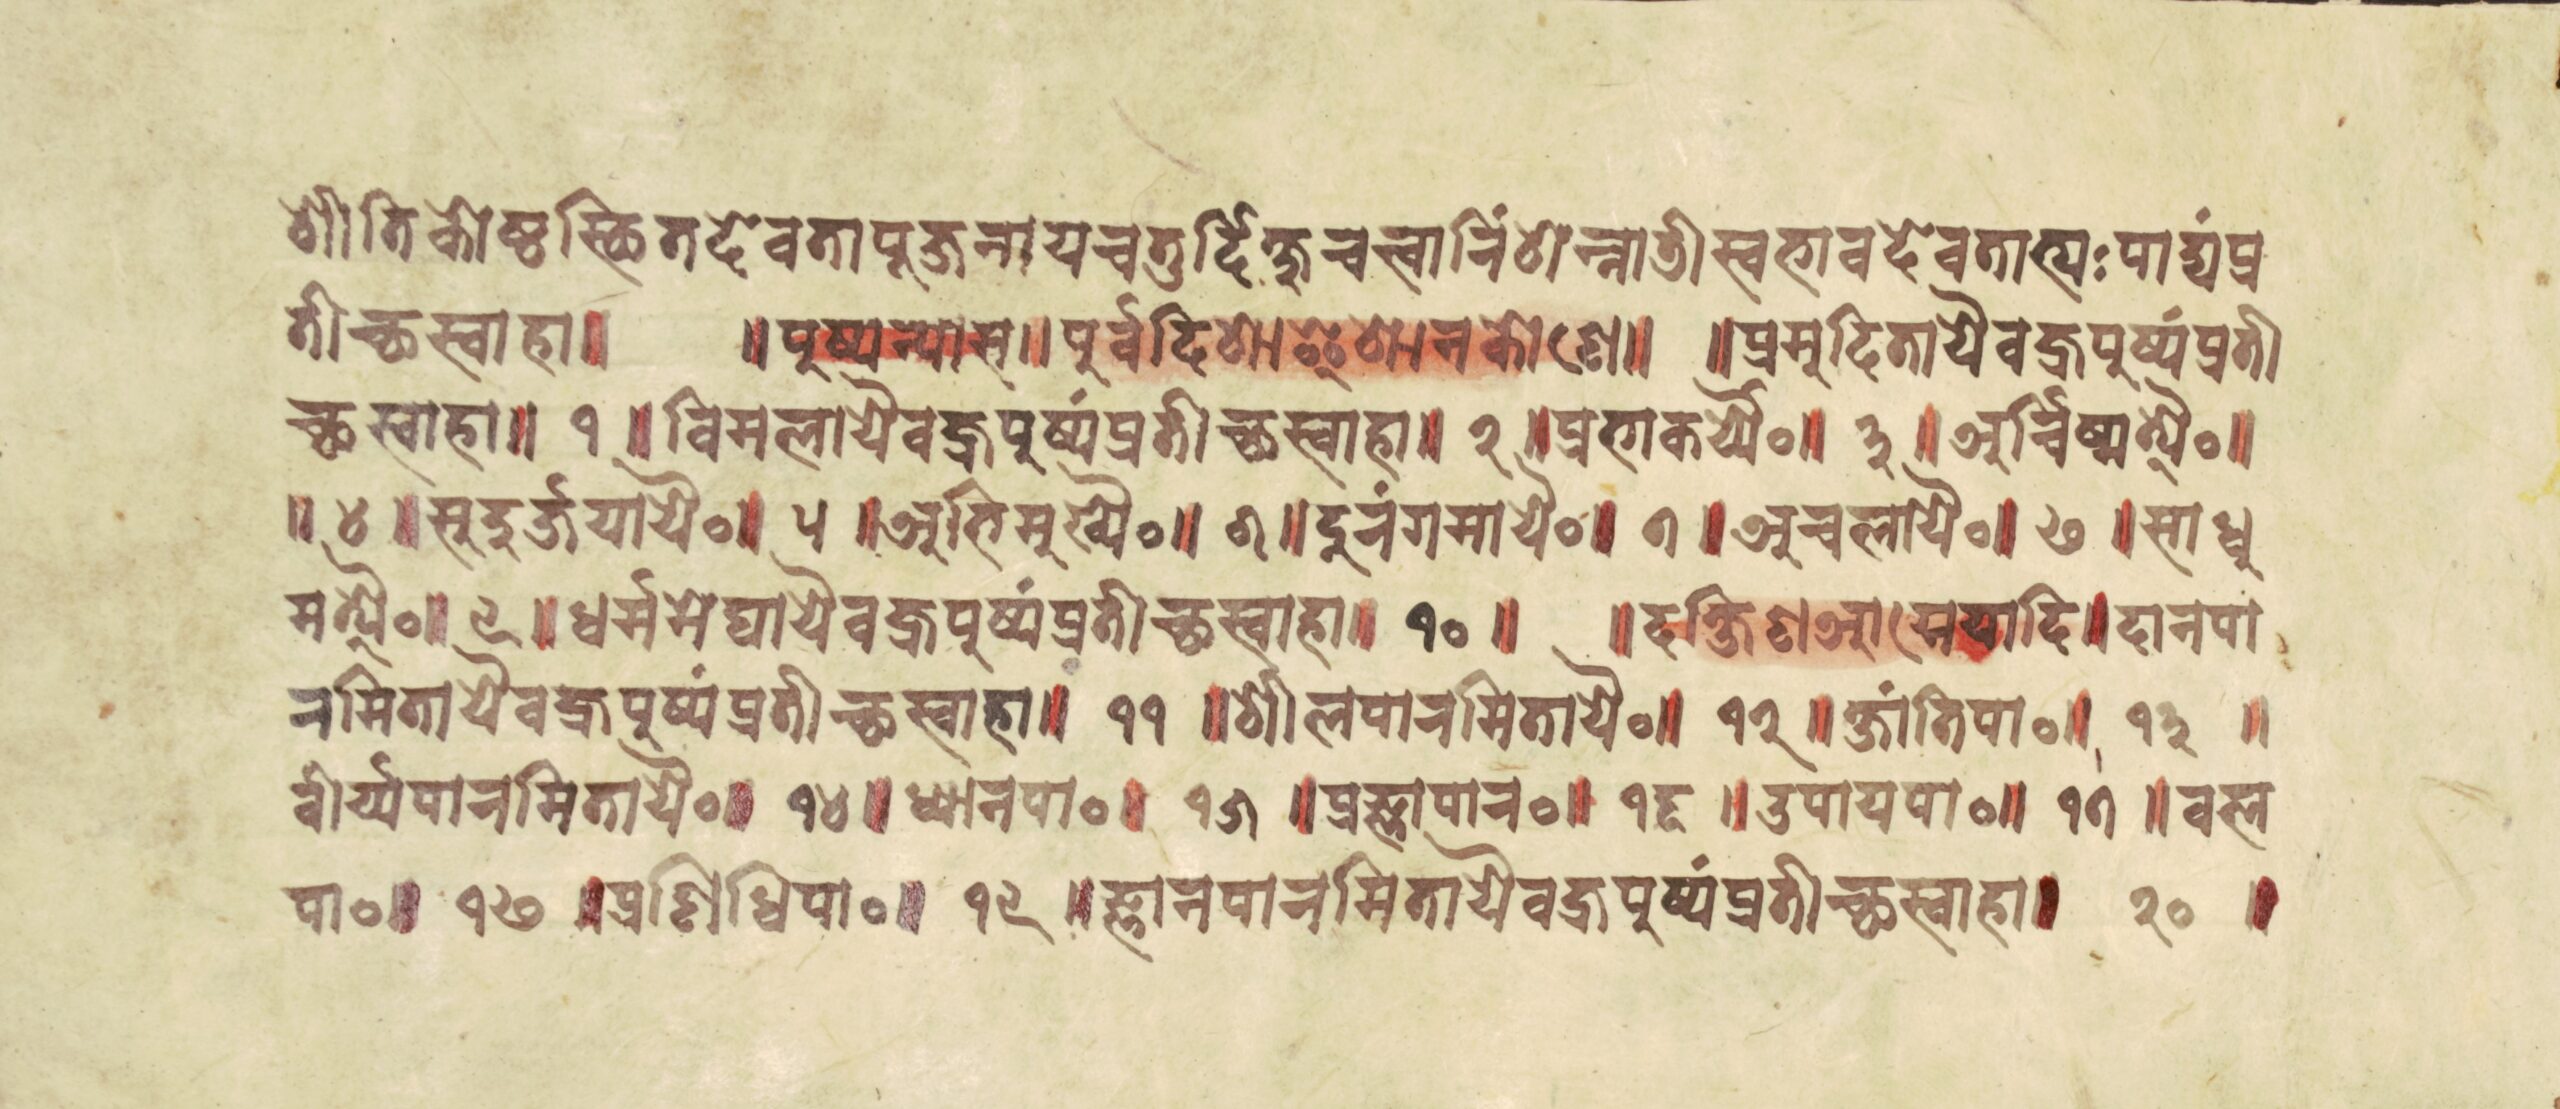 शीतिकोष्ठस्थितदेवतापूजनायचतुर्दिक्षुचत्वारिंशन्नाडीस्वभावदेवताभ्यःपाद्यंप्र
तीच्छस्वाहा॥ ॥पुष्पन्यास॥पुर्वदिशाईशानकोणे॥ ॥प्रमुदितायैवज्रपुष्पंप्रती
च्छस्वाहा॥ १ ॥विमलायैवज्रपुष्पंप्रतीच्छस्वाहा॥ २ ॥प्रभाकर्य्यै०॥ ३ ॥अर्चिष्मत्यै०॥
॥ ४ ॥सुदुर्जयायै०॥ ५ ॥अभिमुख्यै०॥ ६॥दुरंगमायै०॥ ७ ॥अचलायै०॥ ८ ॥साधु
मत्यै०॥ ९ ॥धर्ममेघायैवज्रपुष्पंप्रतीच्छस्वाहा॥ १० ॥ ॥दक्षिणआग्नेयादि॥दानपा
रमितायैवज्रपुष्पंप्रतीच्छस्वाहा॥ ११ ॥शीलपारमितायै०॥ १२ ॥क्षांतिपा०॥ १३ ॥
वीर्य्यपारमितायै०॥ १४॥ध्यानपा०॥ १५ ॥प्रज्ञापार०॥ १६ ॥उपायपा०॥ १७ ॥वल
पा०॥ १८ ॥प्रणिधिपा०॥ १९ ॥ज्ञानपारमितायैवज्रपुष्पंप्रतीच्छस्वाहा॥ २० ॥